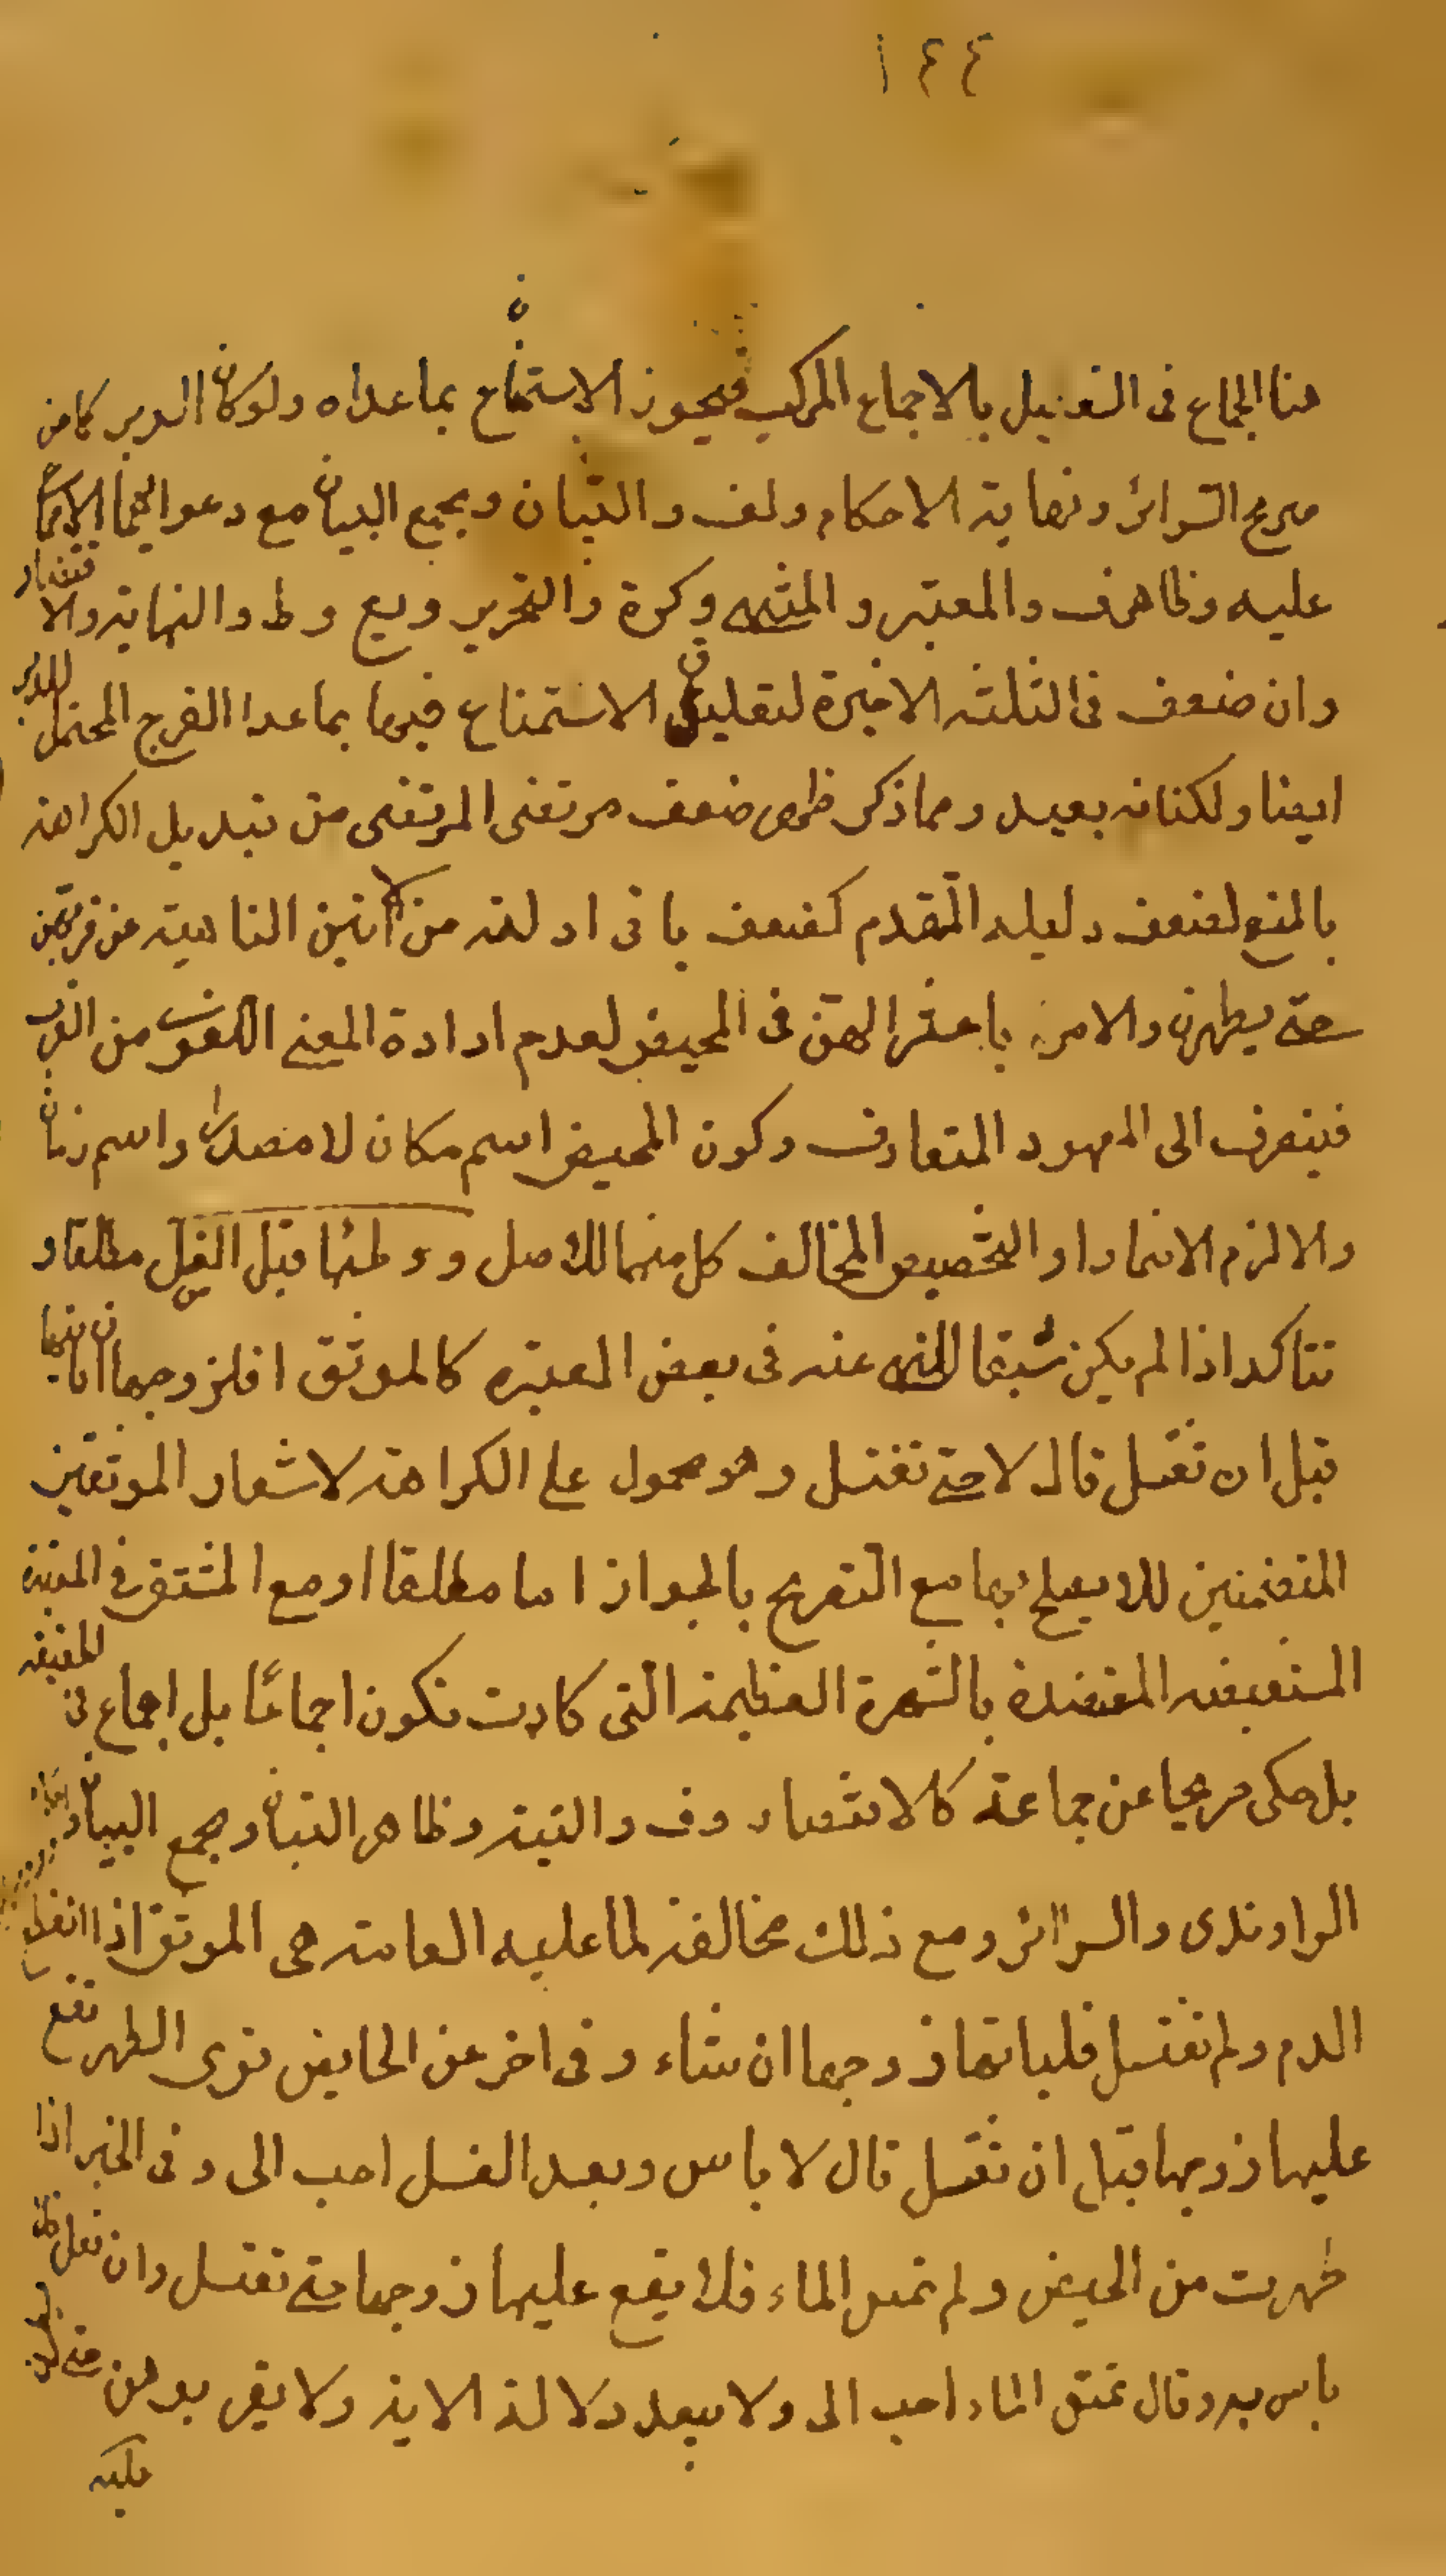 ١٤٤
هنا الجماع فى التفصيل بالاجماع المركب فيجوز الاستمتاع بماعداه ولو كان الدبر كما من
صريح السرائر ونهاية الاحكام ولف والتبيان ومجمع البيان مع دعواهما الاجماع
عليه وظاهر ف والمعتبر والمنتهى وكرة والتحرير ويع وط والنهاية والاقتصاد
وان ضعف فى الثلثة الاخيرة لتعليق الاستمتاع فيها بماعدا الفرج المحتمل للدبر
ايضا ولكنانه بعيد ومما ذكر ظهر ضعف مرتضى المرتضى من تبديل الكراهة
بالمنع لضعف دليله المقدم كضعف باقى ادلته من الآيتين الناهية عن قربهن
حتى يطهرن والامرة باعتزالهن فى المحيض لعدم ارادة المعنى اللغوى من القرب
فينصرف الى المعهود المتعارف وكون المحيض اسم مكان لا مصدرا واسم زمان
والا لزم الاضمار او التخصيص المخالف كل منهما للاصل و وطئها قبل الغسل مطلقا و
تتاكد اذا لم يكن شبقا للنهى عنه فى بعض المعتبرة كالموثق افلزوجها ان ياتيها
قبل ان تغتسل قال لا حتى تغتسل وهو محمول على الكراهة لاشعار الموثقين
المتضمنين للا يصلح بها مع التصريح بالجواز اما مطلقا او مع المشتق فى المعتبرة
المستفيضه المعتضدة بالشهرة العظيمة التى كادت تكون اجماعا بل اجماع فى الحقيقة
بل حكى صريحا عن جماعة كالانتصار وف والغنية وظاهر التبيان ومجمع البيان
الراوندى والسرائر ومع ذلك مخالفة لما عليه العامة هى الموثق اذا انقطع
الدم ولم تغتسل فلياتها زوجها ان شاء وفى اخر عن الحايض ترى الطهر يقع
عليها زوجها قبل ان تغتسل قال لا باس وبعد الغسل احب الى وفى الخبر اذا
طهرت من الحيض ولم تمس الماء فلا يقع عليها زوجها حتى تغتسل وان فعل فلا
باس به وقال تمس الماء احب الى ولا يبعد دلالة الاية ولا تقربوهن حتى يطهرن
عليه